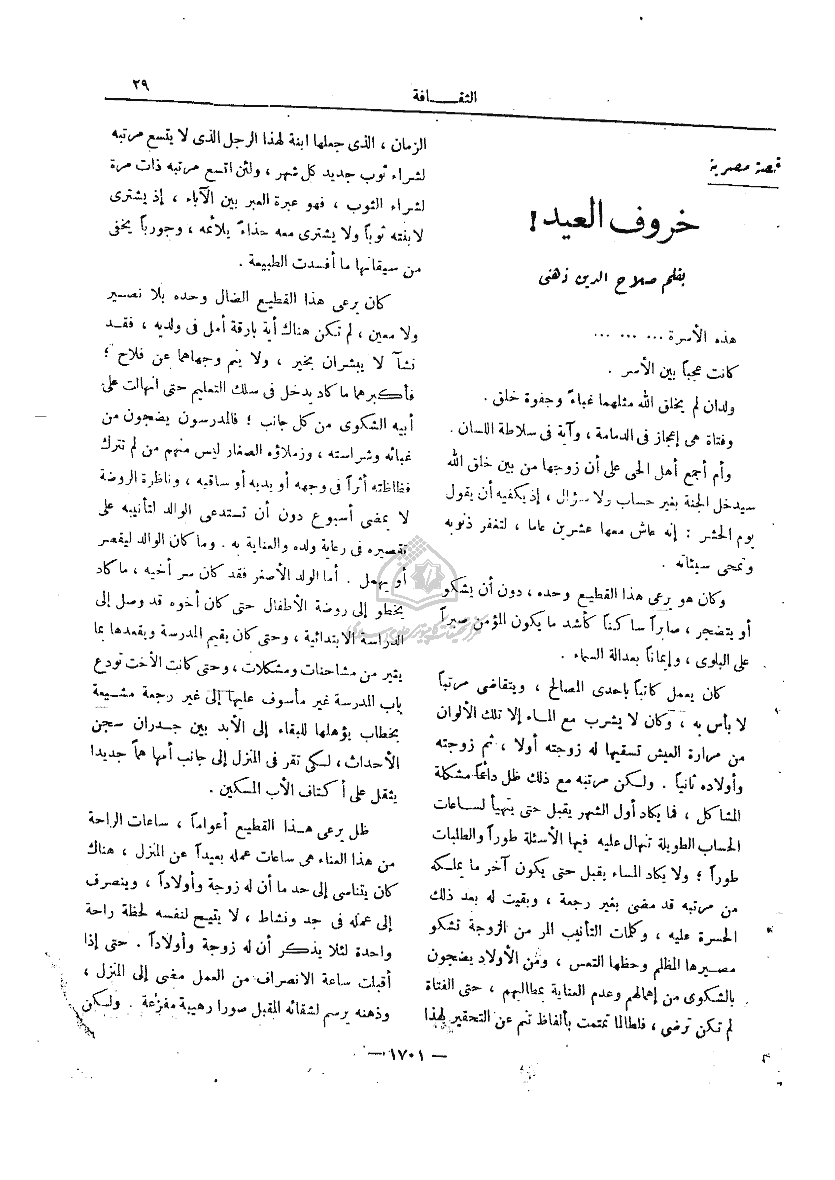 الثقـــافة
٢٩
قصة مصرية
خروف العيد!
بقلم صلاح الدين ذهنى
هذه الأسرة ... ... ...
كانت عجباً بين الأسر .
ولدان لم يخلق الله مثلهما غباءً وجفوة خلق .
وفتاة هى إعجاز فى الدمامة ، وآية فى سلاطة اللسان .
وأم أجمع أهل الحى على أن زوجها من بين خلق الله
سيدخل الجنة بغير حساب ولا سؤال ، إذ يكفيه أن يقول
يوم الحشر : إنه عاش معها عشرين عاما ، لتغفر ذنوبه
وتمحى سيئاته .
وكان هو يرعى هذا القطيع وحده ، دون أن يشكو
أو يتضجر ، صابراً ساكناً كأشد ما يكون المؤمن صبراً
على البلوى ، وإيماناً بعدالة السماء .
كان يعمل كاتباً بإحدى المصالح ، ويتقاضى مرتباً
لا بأس به ، وكان لا يشرب مع الماء إلا تلك الألوان
من مرارة العيش تسقيها له زوجته أولا ، ثم زوجته
وأولاده ثانياً . ولكن مرتبه مع ذلك ظل دائماً مشكلة
المشاكل ، فما يكاد أول الشهر يقبل حتى يتهيأ لساعات
الحساب الطويلة تنهال عليه فيها الأسئلة طوراً والطلبات
طوراً ؛ ولا يكاد المساء يقبل حتى يكون آخر ما يملكه
من مرتبه قد مضى بغير رجعة ، وبقيت له بعد ذلك
الحسرة عليه ، وكلمات التأنيب المر من الزوجة تشكو
مصيرها المظلم وحظها التعس ، ومن الأولاد يضجون
بالشكوى من إهمالهم وعدم العناية بمطالبهم ، حتى الفتاة
لم تكن ترضى ، فلطالما تمتمت بألفاظ تنم عن التحقير لهذا
الزمان ، الذى جعلها ابنة لهذا الرجل الذى لا يتسع مرتبه
لشراء ثوب جديد كل شهر ، ولئن اتسع مرتبه ذات مرة
لشراء الثوب ، فهو عبرة العبر بين الآباء ، إذ يشترى
لابنته ثوباً ولا يشترى معه حذاءً يلائمه ، وجورباً يخفى
من سيقانها ما أفسدت الطبيعة .
كان يرعى هذا القطيع الضال وحده بلا نصير
ولا معين ، لم تكن هناك أية بارقة أمل فى ولديه ، فقد
نشآ لا يبشران بخير ، ولا ينم وجهاهما عن فلاح ؛
فأكبرهما ما كاد يدخل فى سلك التعليم حتى انهالت على
أبيه الشكوى من كل جانب ؛ فالمدرسون يضجون من
غبائه وشراسته ، وزملاؤه الصغار ليس منهم من لم تترك
فظاظته أثراً فى وجهه أو يديه أو ساقيه ، وناظرة الروضة
لا يمضى أسبوع دون أن تستدعى الوالد لتأنيبه على
تقصيره فى رعاية ولده والعناية به . وما كان الوالد ليقصر
أو يهمل . أما الولد الأصغر فقد كان سر أخيه ، ما كاد
يخطو إلى روضة الأطفال حتى كان أخوه قد وصل إلى
الدراسة الابتدائية ، وحتى كان يقيم المدرسة ويقعدها بما
يثير من مشاحنات ومشكلات ، وحتى كانت الأخت تودع
باب المدرسة غير مأسوف عليها إلى غير رجعة مشيعة
بخطاب يؤهلها للبقاء إلى الأبد بين جدران سجن
الأحداث ، لكى تقر فى المنزل إلى جانب أمها هماً جديدا
يثقل على أكتاف الأب المسكين .
ظل يرعى هـذا القطيع أعواماً ، ساعات الراحة
من هذا العناء هى ساعات عمله بعيداً عن المنزل ، هناك
كان يتناسى إلى حد ما أن له زوجة وأولاداً ، وينصرف
إلى عمله فى جد ونشاط ، لا يتيح لنفسه لحظة راحة
واحدة لئلا يذكر أن له زوجة وأولاداً . حتى إذا
أقبلت ساعة الانصراف من العمل مضى إلى المنزل ،
وذهنه يرسم لشقائه المقبل صورا رهيبة مفزعة . ولكن
— ١٧٠١ —